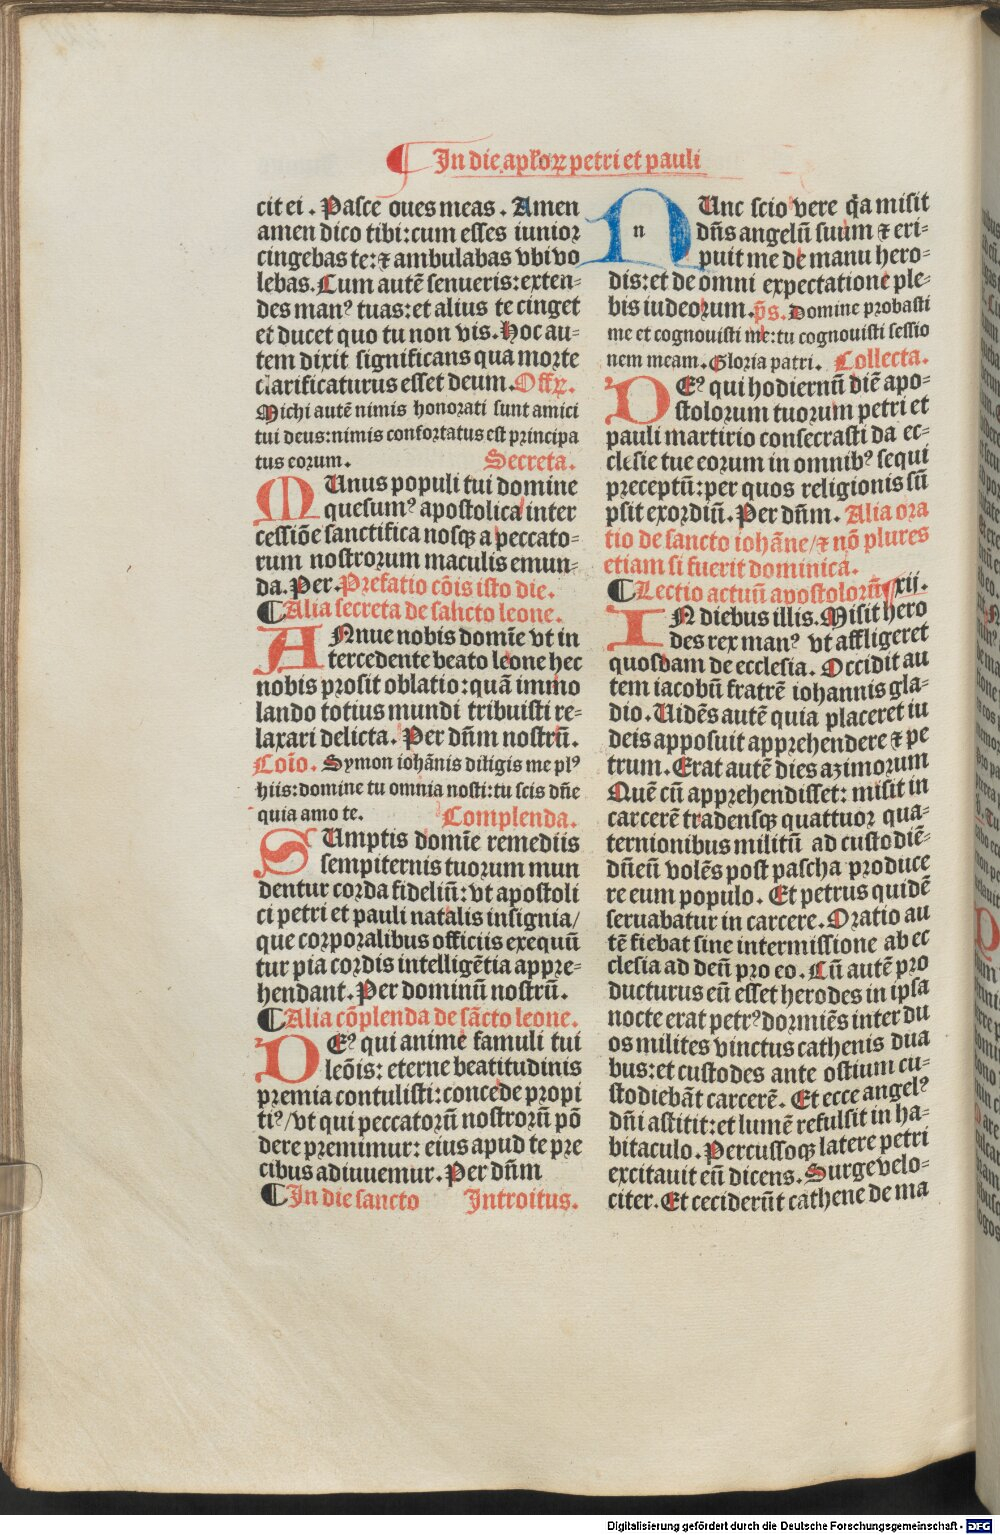 In die apl'oꝝ petri et pauli
cit ei . Pasce oues meas . Amen
amen dico tibi: cum esses iunior
cingebas te: ⁊ ambulabas vbi vo
lebas. Cum autē senueris: exten-
des manꝰ tuas: et alius te cinget
et ducet quo tu non vis. Hoc au-
tem dixit significans qua morte
clarificaturus esset deum. Offꝝ.
Michi autē nimis honorati sunt amici
tui deus: nimis confortatus est principa
tus eorum. Secreta.
MUnus populi tui domine
quesumꝰ apostolica inter
cessiōe sanctifica nosqꝫ a peccato-
rum nostrorum maculis emun-
da. Per. Prefatio cōis isto die.
¶Alia secreta de sancto leone.
ANnue nobis domīe vt in
tercedente beato leone hec
nobis prosit oblatio: quā immo
lando totius mundi tribuisti re-
laxari delicta. Per dūm nostrū.
Coīo. Symon iohānis diligis me plꝰ
hiis: domine tu omnia nosti: tu scis dūe
quia amo te. Complenda.
SUmptis domīe remediis
sempiternis tuorum mun
dentur corda fideliū: vt apostoli
ci petri et pauli natalis insignia/
que corporalibus officiis exequū
tur pia cordis intelligētia appre-
hendant. Per dominū nostrū.
¶Alia cōplenda de sācto leone.
DEꝰ qui anime famuli tui
leōis: eterne beatitudinis
premia contulisti: concede propi
tiꝰ/ vt qui peccatorū nostrorū pō
dere premimur: eius apud te pre
cibus adiuuemur. Per dūm
¶In die sancto Introitus.
n
NUnc scio vere q̄a misit
dūs angelū suum ⁊ eri-
puit me de manu hero-
dis: et de omni expectatione ple-
bis iudeorum. p̄s. Domine probasti
me et cognouisti me: tu cognouisti sessio
nem meam. Gloria patri. Collecta.
DEꝰ qui hodiernū diē apo-
stolorum tuorum petri et
pauli martirio consecrasti da ec-
clesie tue eorum in omnibꝰ sequi
preceptū: per quos religionis sū
psit exordiū. Per dūm. Alia ora
tio de sancto iohāne/ ⁊ nō plures
etiam si fuerit dominica.
¶Lectio actuū apostolorū xij.
IN diebus illis. Misit hero
des rex manꝰ vt affligeret
quosdam de ecclesia. Occidit au
tem iacobū fratrē iohannis gla-
dio. Uidēs autē quia placeret iu
deis apposuit apprehendere ⁊ pe
trum. Erat autē dies azimorum
Quē cū apprehendisset: misit in
carcerē tradensqꝫ quattuor qua-
ternionibus militū ad custodiē-
dū eū volēs post pascha produce
re eum populo. Et petrus quidē
seruabatur in carcere. Oratio au
tē fiebat sine intermissione ab ec
clesia ad deū pro eo. Cū autē pro
ducturus eū esset herodes in ipsa
nocte erat petrꝰ dormiēs inter du
os milites vinctus cathenis dua
bus: et custodes ante ostium cu-
stodiebāt carcerē. Et ecce angelꝰ
dūi astitit: et lumē refulsit in ha-
bitaculo. Percussoqꝫ latere petri
excitauit eū dicens. Surge velo-
citer. Et ceciderūt cathene de ma
Digitalisierung gefördert durch die Deutsche Forschungsgemeinschaft - DFG